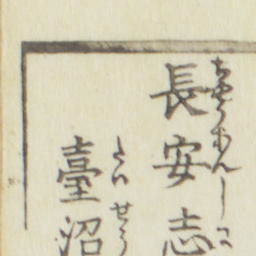 長安志
ちやうあんし
臺沼
たいせう